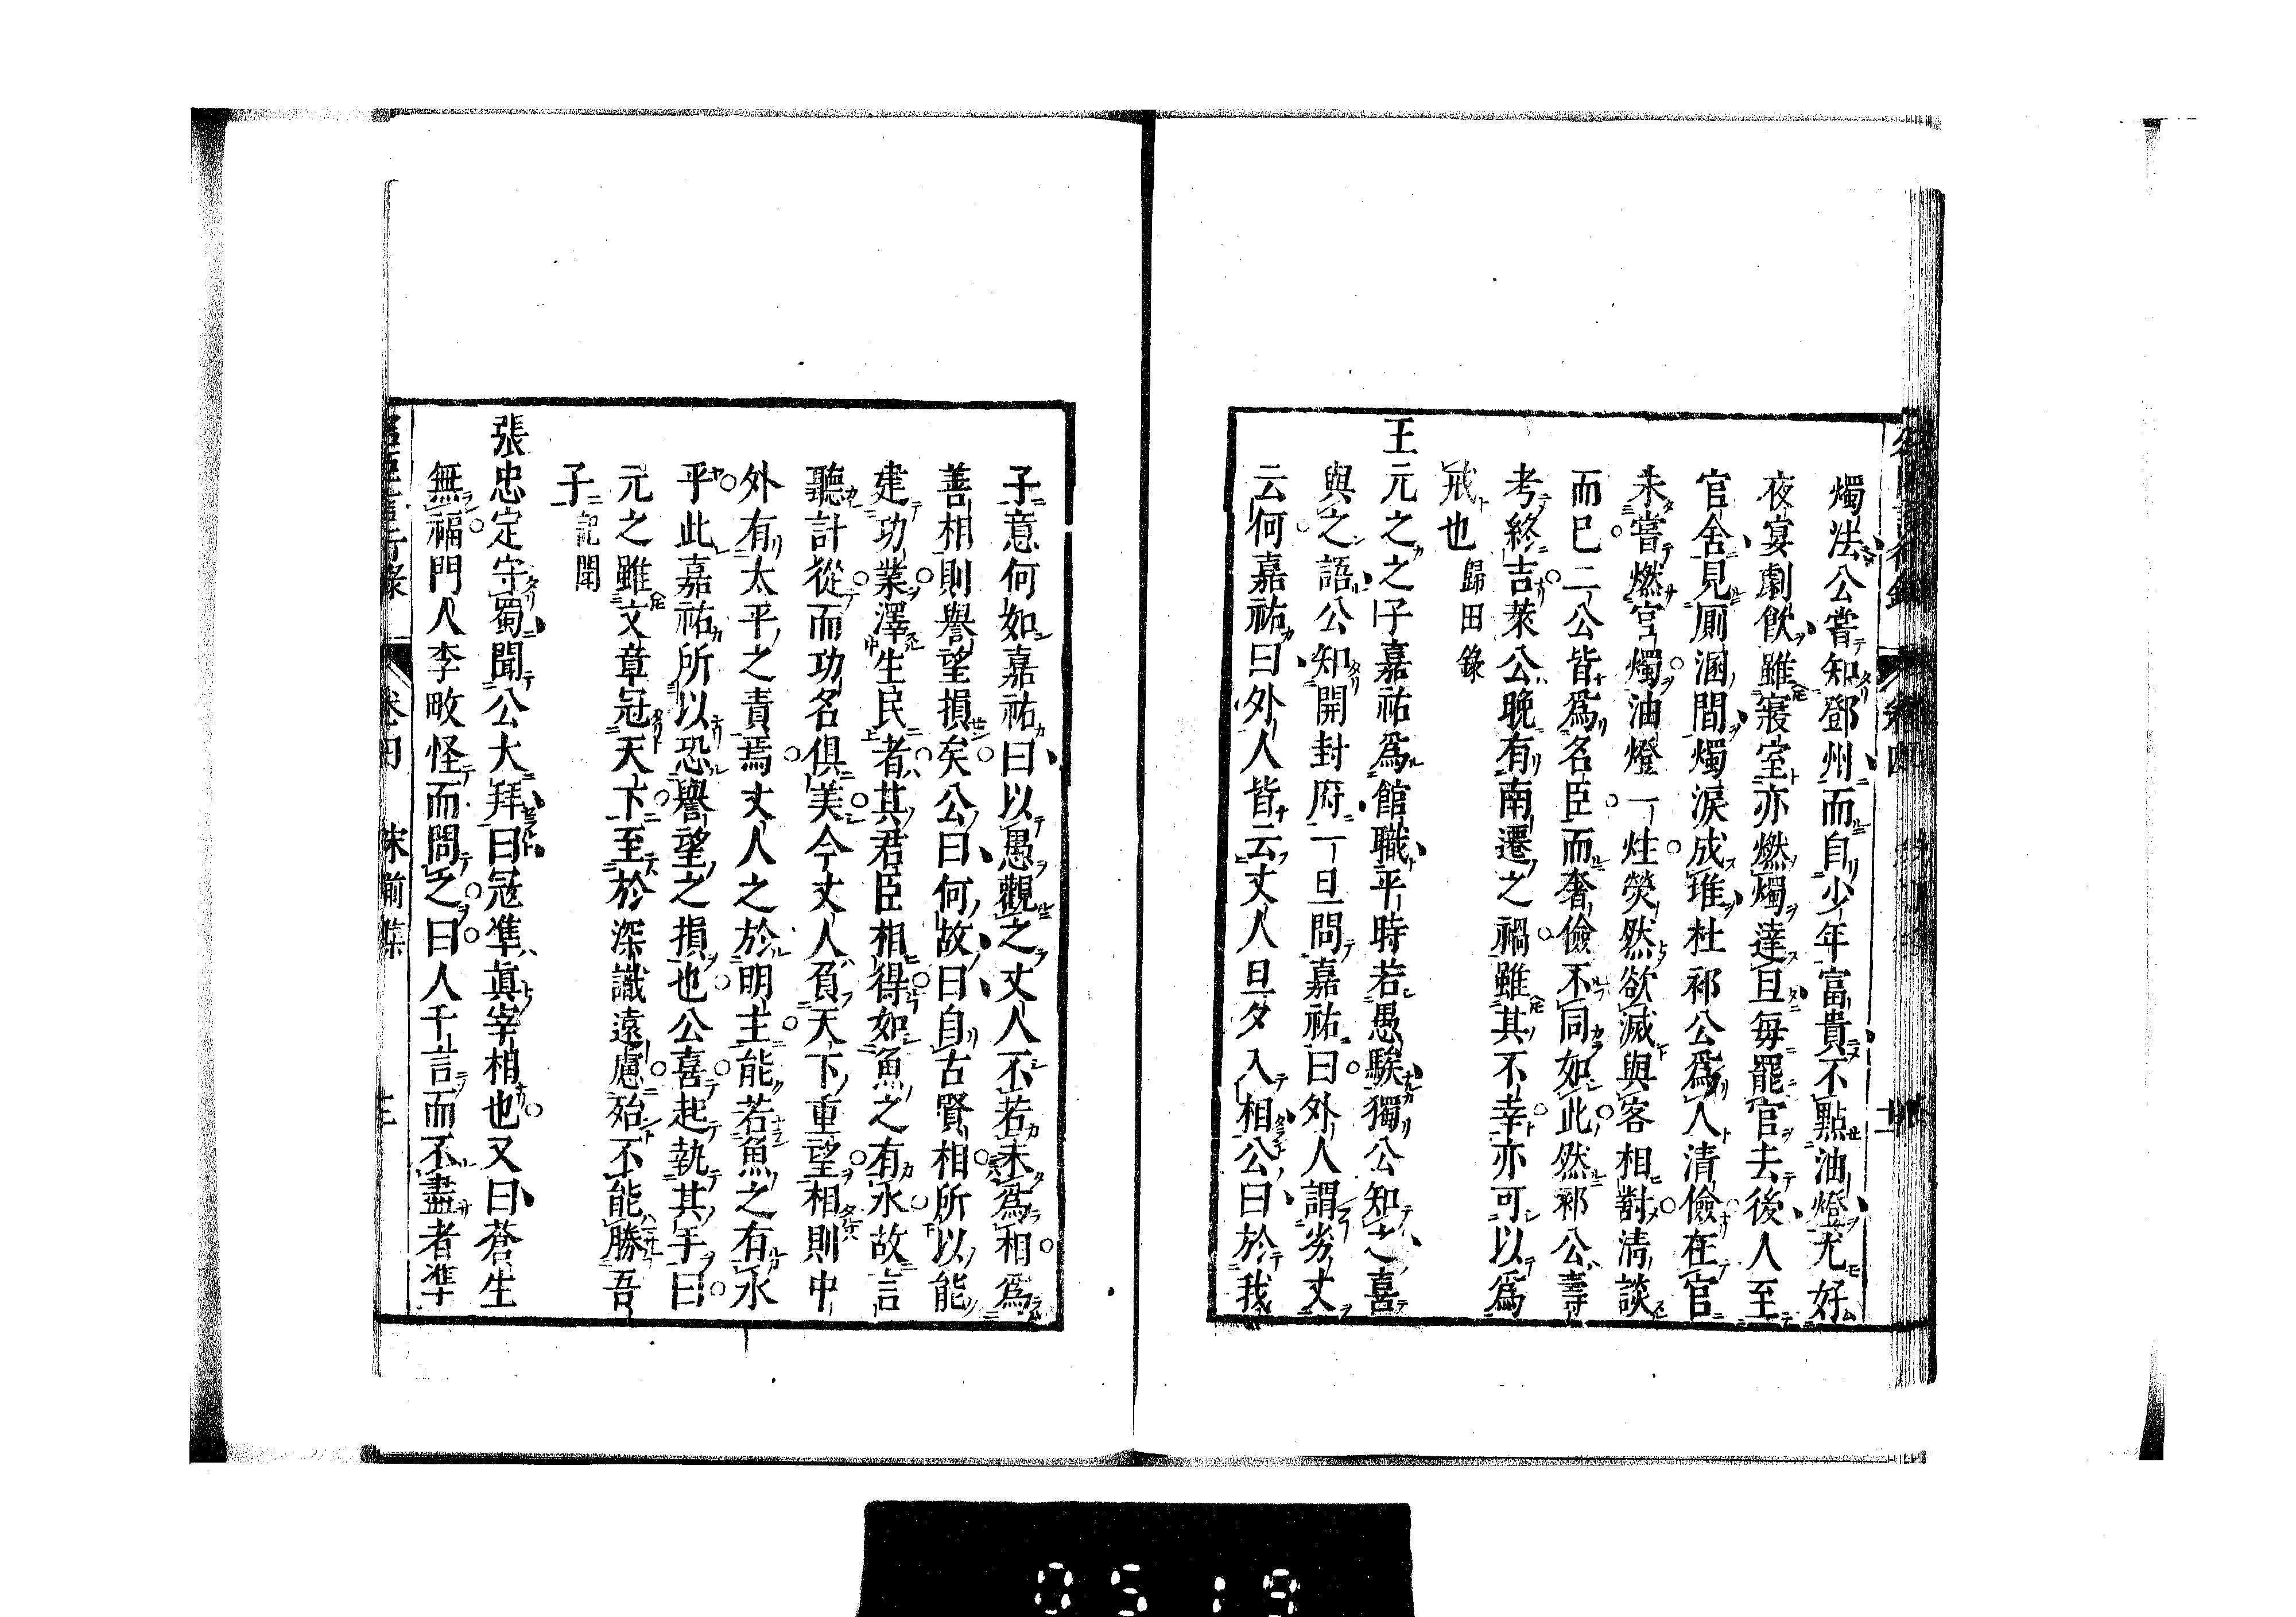 燭法公嘗知鄧州而自少年富貴不點油燈尤好
夜宴劇飲雖寢室亦燃燭達旦每罷官去後人至
官舍見厠溷間燭淚成堆杜祁公為人清儉在官
未嘗燃官燭油燈一炷熒然欲滅與客相對清談
而已二公皆為名臣而奢儉不同如此然祁公壽
考終吉萊公晚有南遷之禍雖其不幸亦可以為
戒也 歸田錄
王元之之子嘉祐為館職平時若愚騃獨公知之喜
與之語公知開封府一旦問嘉祐曰外人謂劣丈
云何嘉祐曰外人皆云丈人旦夕入相公曰於我
子意何如嘉祐曰以愚觀之丈人不若未為相為
善相則譽望損矣公曰何故曰自古賢相所以能
建功業澤生民者其君臣相得如魚之有水故言
聽計從而功名俱美今丈人負天下重望相則中
外有太平之責焉丈人之於明主能若魚之有水
乎此嘉祐所以恐譽望之損也公喜起執其手曰
元之雖文章冠天下至於深識遠慮殆不能勝吾
子 記聞
張忠定守蜀聞公大拜曰寇準真宰相也又曰蒼生
無福門人李畋怪而問之曰人千言而不盡者準
卷四 宋前集